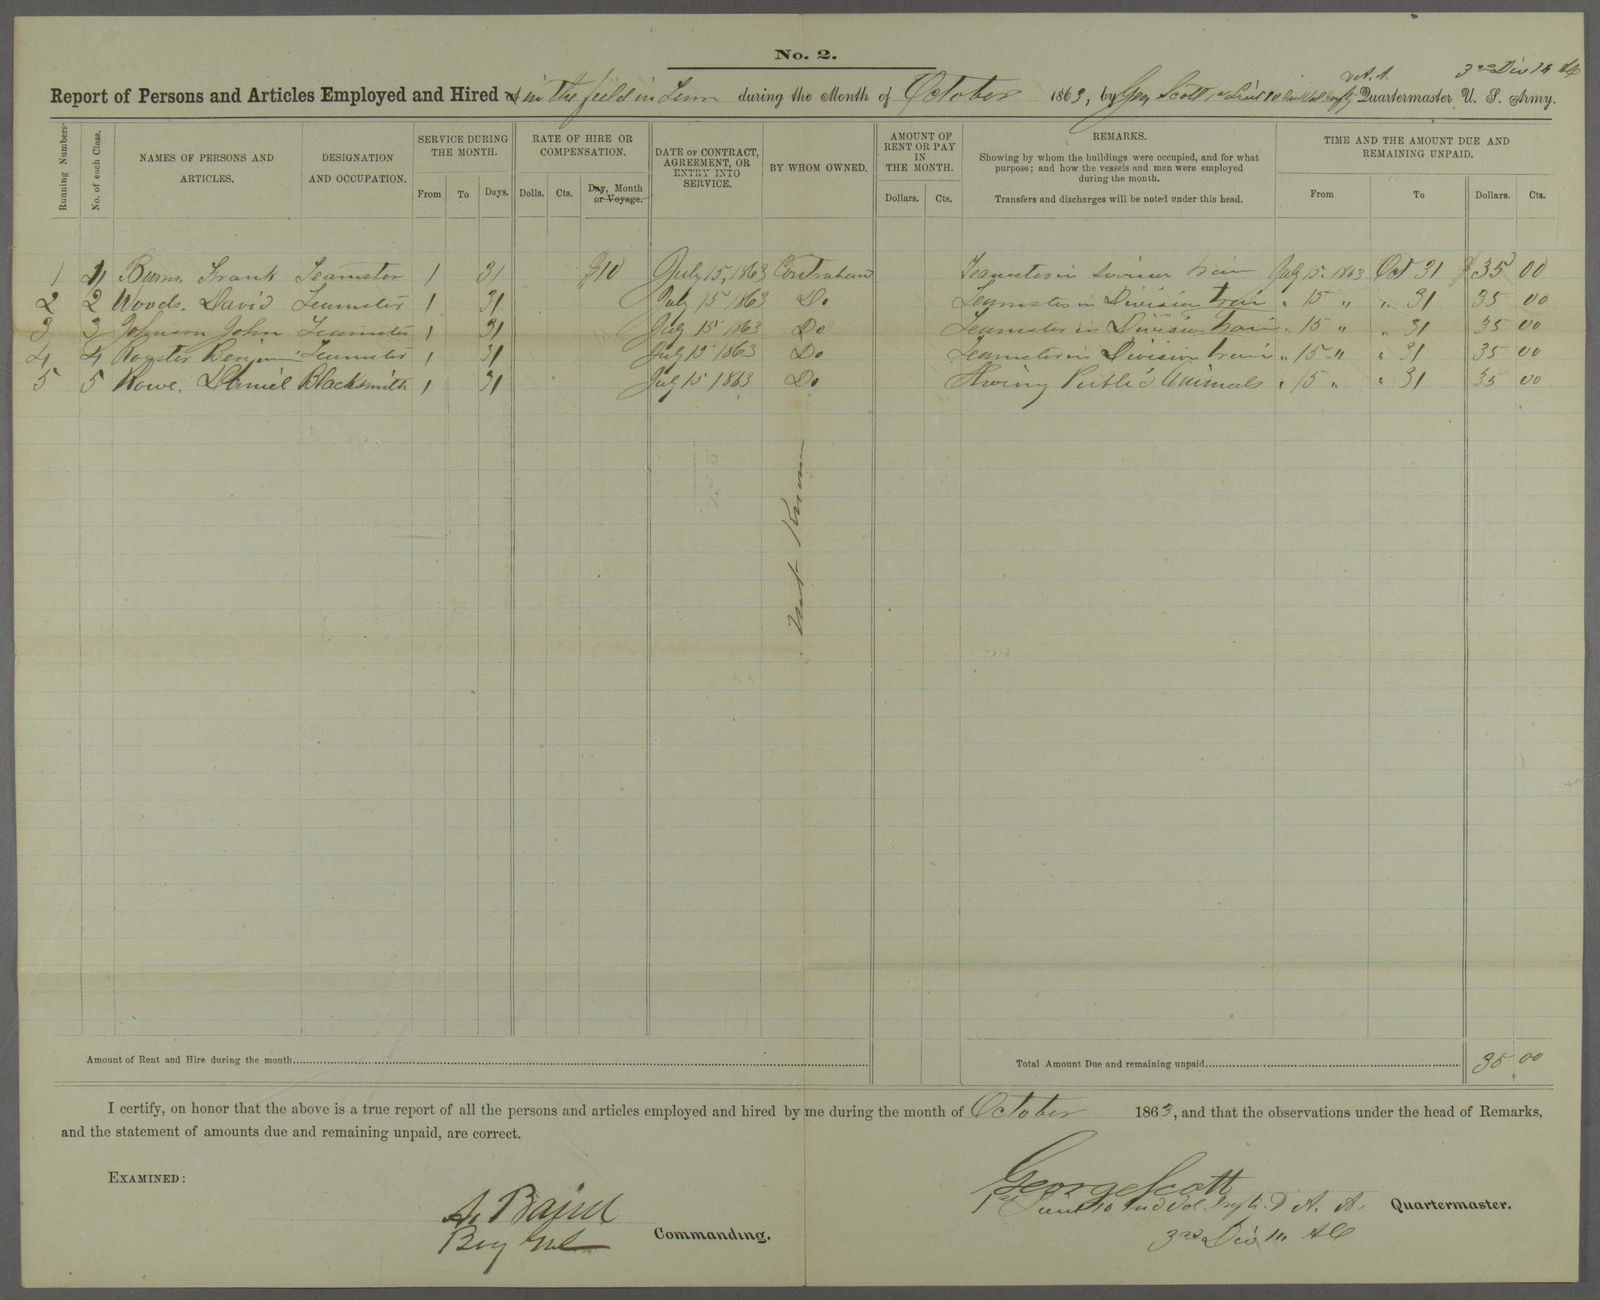 No. 2.
3rd Div 14 AC
Report of Persons and Articles Employed and Hired at in the field in Tenn during the Month of October 1863, by Geo Scott 1st Lieut Quartermaster U. S. Army.
Running Numbers.
No. of each Class.
NAMES OF PERSONS AND ARTICLES.
DESIGNATION AND OCCUPATION.
SERVICE DURING THE MONTH.
From To Days.
RATE OF HIRE OR COMPENSATION.
Dolls. Cts. Day, Month or Voyage.
DATE OF CONTRACT, AGREEMENT, OR ENTRY INTO SERVICE.
BY WHOM OWNED.
AMOUNT OF RENT OR PAY IN THE MONTH.
Dollars. Cts.
REMARKS.
Showing by whom the buildings were occupied, and for what purpose; and how the vessels and men were employed during the month.
Transfers and discharges will be noted under this head.
TIME AND THE AMOUNT DUE AND REMAINING UNPAID.
From To Dollars. Cts.
1 1 Burns, Frank Teamster 1 31 $10 July 15, 1863 Contraband Teamster in Division train July 15. 1863 Oct 31 $35 00
2 2 Woods. David Teamster 1 31 July 15 1863 Do Teamster in Division train " 15 " " 31 35 00
3 3 Johnson John Teamster 1 31 July 15 1863 Do Teamster in Division train " 15 " " 31 35 00
4 4 Royster Benjamin Teamster 1 31 July 15 1863 Do Teamster in Division train " 15 " " 31 35 00
5 5 Rowe. Daniel Blacksmith 1 31 July 15 1863 Do Shoeing Public Animals " 15 " " 31 35 00
Not Known
Amount of Rent and Hire during the month
Total Amount Due and remaining unpaid 35 00
I certify, on honor that the above is a true report of all the persons and articles employed and hired by me during the month of October 1863, and that the observations under the head of Remarks,
and the statement of amounts due and remaining unpaid, are correct.
EXAMINED:
A. Baird
Brig Genl Commanding.
George Scott
1st Lieut 10 Ind Vol. Infty. A. A. Quartermaster.
3rd Div 14 AC